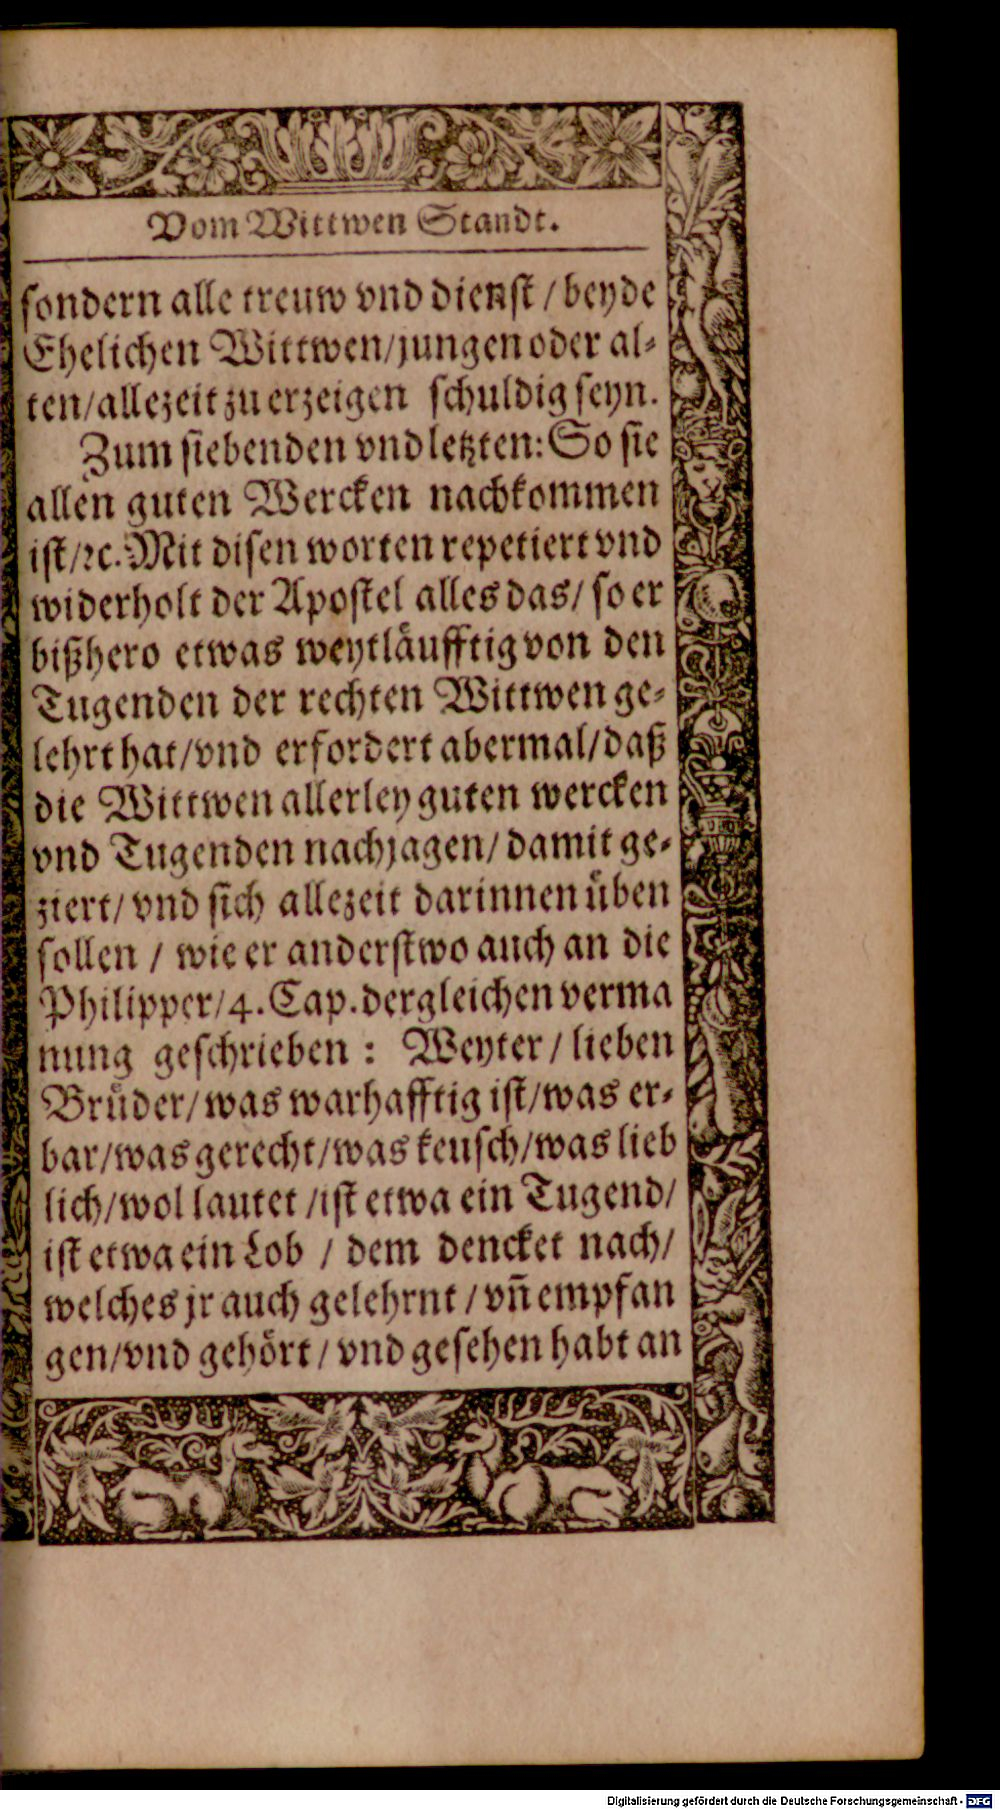 Vom Wittwen Standt.
sondern alle treuw vnd dienst / beyde
Ehelichen Wittwen/jungen oder al⸗
ten/allezeit zu erzeigen schuldig seyn.
Zum siebenden vnd letzten: So sie
allen guten Wercken nachkommen
ist/ꝛc. Mit disen worten repetiert vnd
widerholt der Apostel alles das/ so er
bißhero etwas weytläufftig von den
Tugenden der rechten Wittwen ge⸗
lehrt hat/vnd erfordert abermal/daß
die Wittwen allerley guten wercken
vnd Tugenden nachjagen/ damit ge⸗
ziert/ vnd sich allezeit darinnen üben
sollen / wie er anderstwo auch an die
Philipper/4. Cap. dergleichen verma
nung geschrieben : Weyter / lieben
Brüder/was warhafftig ist/was er⸗
bar/was gerecht/was keusch/was lieb
lich/wol lautet /ist etwa ein Tugend/
ist etwa ein Lob / dem dencket nach/
welches jr auch gelehrnt / vñ empfan
gen/vnd gehört / vnd gesehen habt an
Digitalisierung gefördert durch die Deutsche Forschungsgemeinschaft - DFG